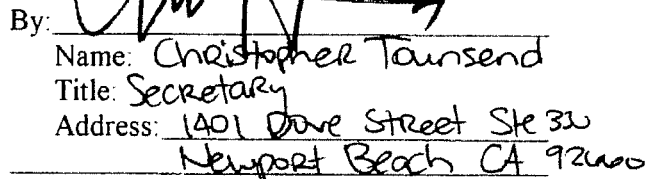 By:
Name: Christopher Townsend
Title: Secretary
Address: 1401 Dove Street Ste 330
Newport Beach CA 92660